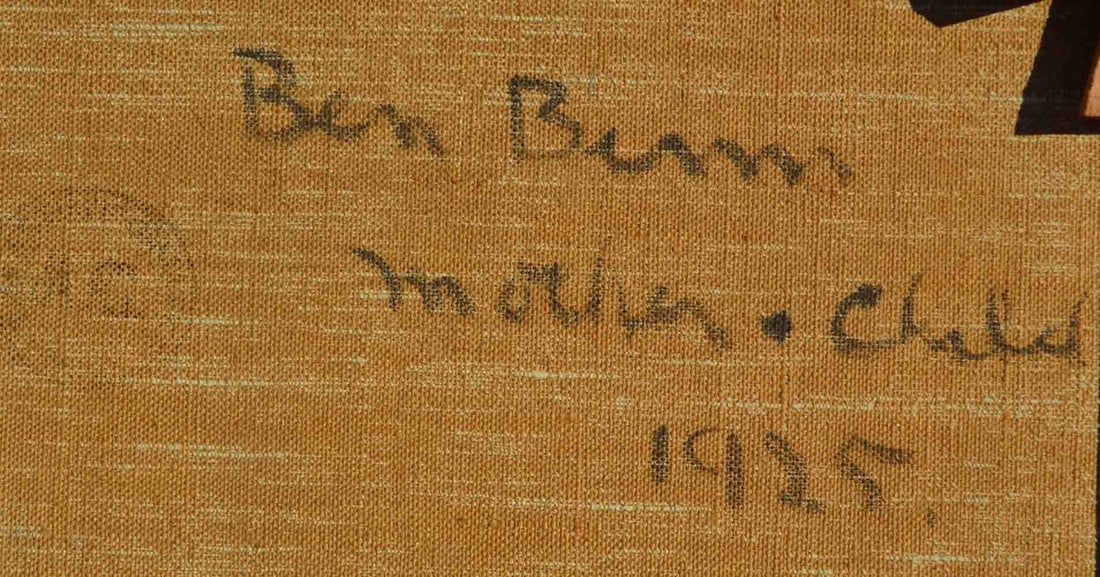 Ben Benn
Mother • Child
1925.